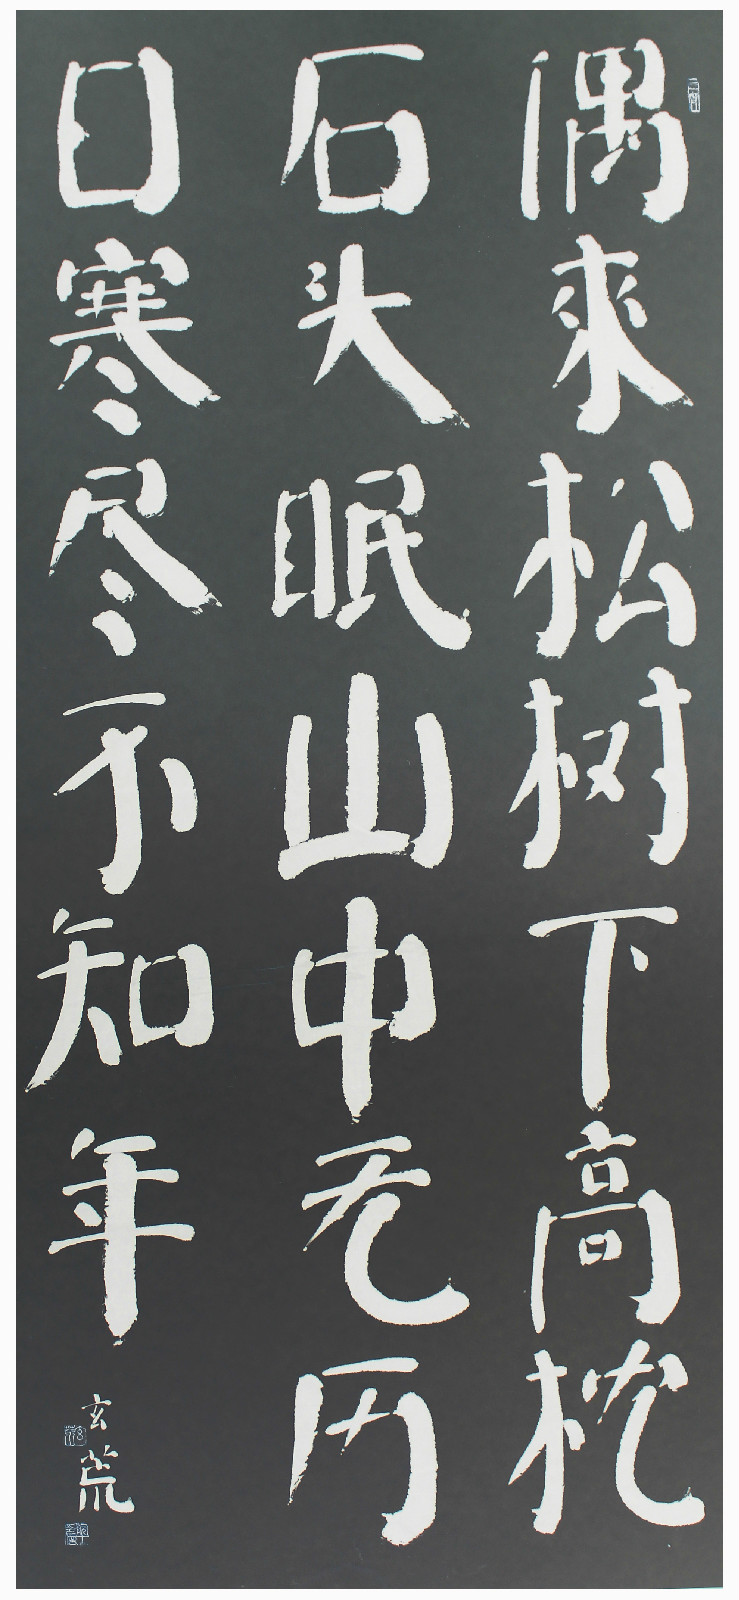 偶來松树下高枕
石头眠山中无历
日寒尽不知年
玄荒